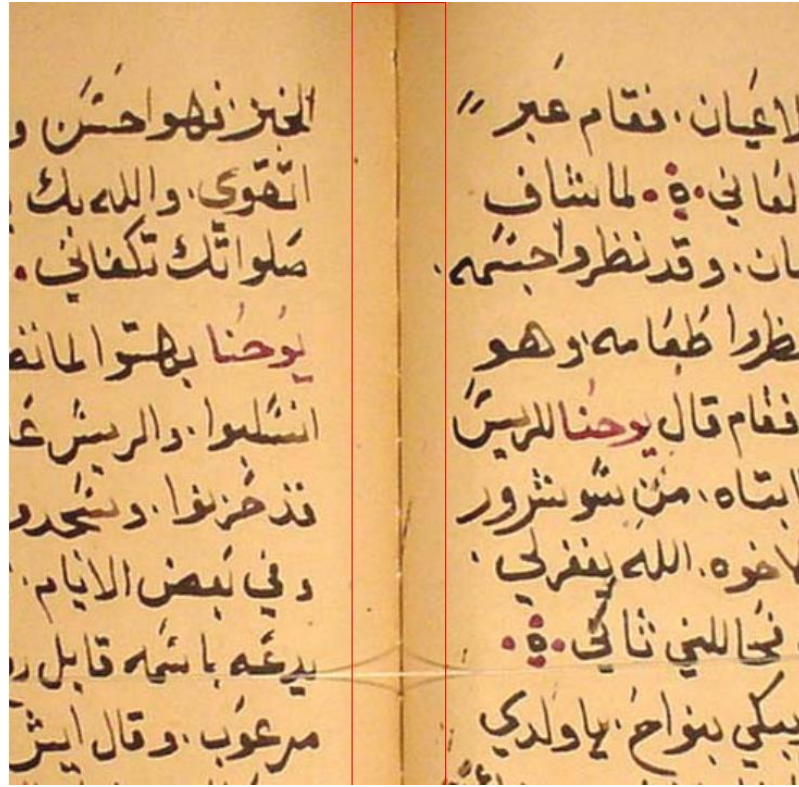 لاعيان. فقام عبر
لعاني. ه. لما شاف
ان. وقد نظروا جسمه.
ظروا طعامه وهو
فقام قال يوحنا للريس
ابتاه. من شو شرور
اخوه. الله يغفرلي.
نحا للني ثاني. ه.
يبكي بنواح. يا ولدي
الخبز. فهوا حسن و
اتقوى. والله بك
صلواتك تكفاني.
يوحنا بهتوا لما
انسلبوا. والريس
قد حزنوا. وسجدو
وفي بعض الايام.
يدعه باسمه قابل
مرعوب. وقال ايش